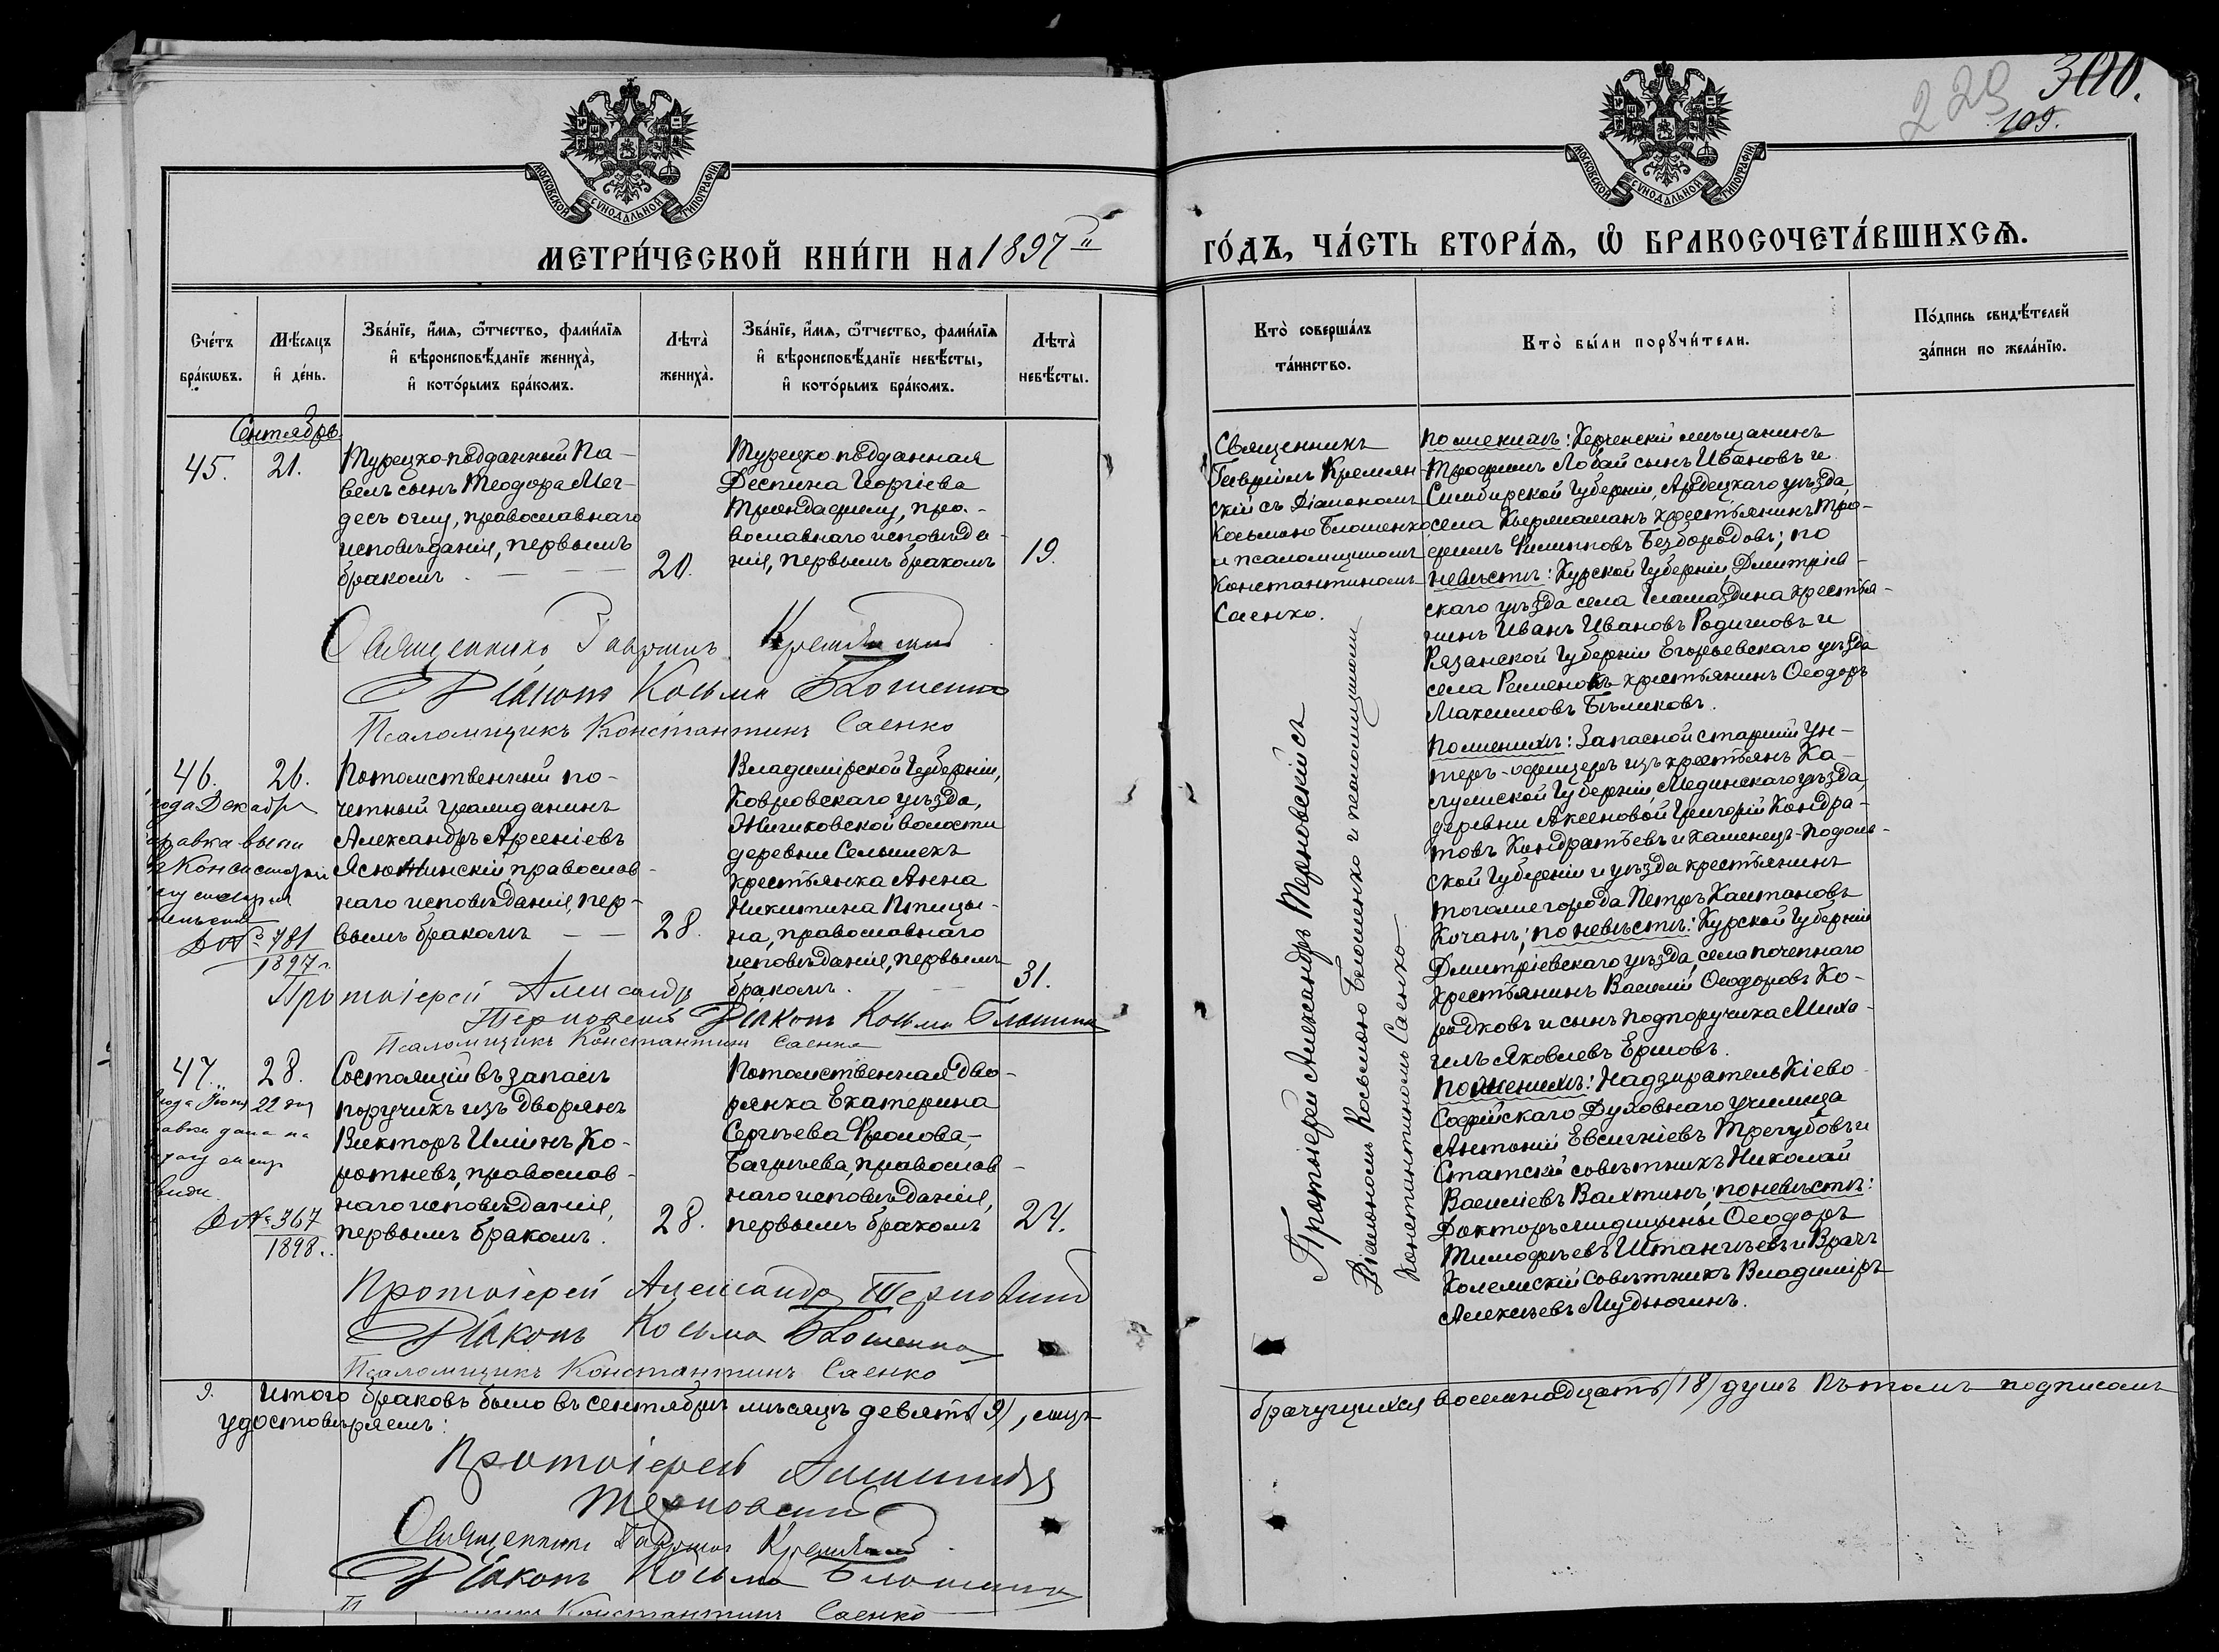 229
300.
109.
МОСКОВСКОЙ СѴНОДАЛЬНОЙ ТИПОГРАФІИ
МОСКОВСКОЙ СѴНОДАЛЬНОЙ ТИПОГРАФІИ
МЕТРИ́ЧЕСКОЙ КНИ́ГИ НА 1897й
ГО́ДЪ, ЧА́СТЬ ВТОРА́Ѧ, Ѡ҆ БРАКОСОЧЕТА́ВШИХСѦ.
Сче́тъ бра́кѡвъ.
Мѣ́сяцъ и҆ де́нь.
Зва́нїе, и҆́мѧ, ѻ҆́тчество, фами́лїѧ
и҆ вѣроисповѣ́данїе жениха̀,
и҆ кото́рымъ бра́комъ.
Лѣта̀ жениха̀.
Зва́нїе, и҆́мѧ, ѻ҆́тчество, фами́лїѧ
и҆ вѣроисповѣ́данїе невѣ́сты,
и҆ кото́рымъ бра́комъ.
Лѣта̀ невѣ́сты.
Кто̀ соверша́лъ та́инство.
Кто̀ бы́ли порꙋчи́тели.
По́дпись свидѣ́телей за́писи по жела́нїю.
Сентябрь.
45.
21.
Турецко-подданный Па-
велъ сынъ Теодора Мег-
десъ оглу, православнаго
исповѣданія, первымъ
бракомъ
20.
Турецко-подданная
Деспина Георгіева
Трандафилу, пра-
вославнаго исповѣда-
нія, первымъ бракомъ
19.
Священникъ
Гавріилъ Кремян-
скій съ Діакономъ
Косьмою Блошенко
и псаломщикомъ
Константиномъ
Саенко.
По женихѣ: Керченскій мѣщанинъ
Трофимъ Лобай сынъ Ивановъ и
Симбирской Губерніи, Ардецкаго уѣзда
села Кьермаманъ крестьянинъ Тро-
фимъ Филипповъ Безбородовъ; по
невѣстѣ: Курской Губерніи, Дмитріев-
скаго уѣзда села Гламаздина крестья-
нинъ Иванъ Ивановъ Родіоновъ и
Рязанской Губерніи Егорьевскаго уѣзда
села крестьянинъ Ѳеодоръ
Максимовъ Бѣликовъ.
Священникъ Гавріилъ Кремянскій
Діаконъ Косьма Блошенко
Псаломщикъ Константинъ Саенко
46.
26.
года Декабря
выпи
Консисторіи
№ 781
1897 г.
Потомственный по-
четный гражданинъ
Александръ Арсеніевъ
Ясюнинскій, православ-
наго исповѣданія, пер-
вымъ бракомъ
28.
Владимірской Губерніи,
Ковровскаго уѣзда,
Эдемской
деревни Сельшекъ
крестьянка Анна
Никитина Птицы-
на, православнаго
исповѣданія, первымъ
бракомъ.
31.
Протоіерей Александръ Терновскій съ
Діакономъ Косьмою Блошенко и псаломщикомъ
Константиномъ Саенко
По женихѣ: Запасной старшій ун-
теръ-офицеръ изъ крестьянъ Ка-
лужской Губерніи Мединскаго уѣзда,
деревни Аксеновой Григорій Кондра-
товъ Кондратьевъ и Каменецъ-Подоль-
ской Губерніи и уѣзда крестьянинъ
тогоже города Петръ Каштановъ
Кочанъ; по невѣстѣ: Курской Губерніи
Дмитріевскаго уѣзда, села поченнаго
крестьянинъ Василій Ѳеодоровъ Ко-
родковъ и сынъ подпоручика Миха-
илъ Яковлевъ Ершовъ.
Протоіерей Александръ
Терновскій Діаконъ Косьма Блошенко
Псаломщикъ Константинъ Саенко
47.
28.
года Іюня 22 дня
дана на
№ 367
1898.
Состоящій въ запасѣ
поручикъ изъ дворянъ
Викторъ Ильинъ Ко-
ротневъ, православ-
наго исповѣданія,
первымъ бракомъ.
28.
Потомственная дво-
рянка Екатерина
Сергѣева Фролова-
Багрѣева, православ-
наго исповѣданія,
первымъ бракомъ
24.
По женихѣ: Надзиратель Кіево-
Софійскаго Духовнаго училища
Антоній Евсигніевъ Трегубовъ и
Статскій совѣтникъ Николай
Василіевъ Вахтинъ; по невѣстѣ:
Докторъ медицины Ѳеодоръ
Тимофѣевъ Штангѣевъ и Врачъ
Колежскій Совѣтникъ Владиміръ
Алексѣевъ Мудрогинъ.
Протоіерей Александръ Терновскій
Діаконъ Косьма Блошенко
Псаломщикъ Константинъ Саенко
9. Итого браковъ было въ сентябрѣ мѣсяцѣ девять (9), лицъ
брачущихся восемнадцать (18) душъ въ томъ подписомъ
удостовѣряемъ:
Протоіерей Александръ
Терновскій
Священникъ Гавріилъ Кремянскій
Діаконъ Косьма Блошенко
Константинъ Саенко